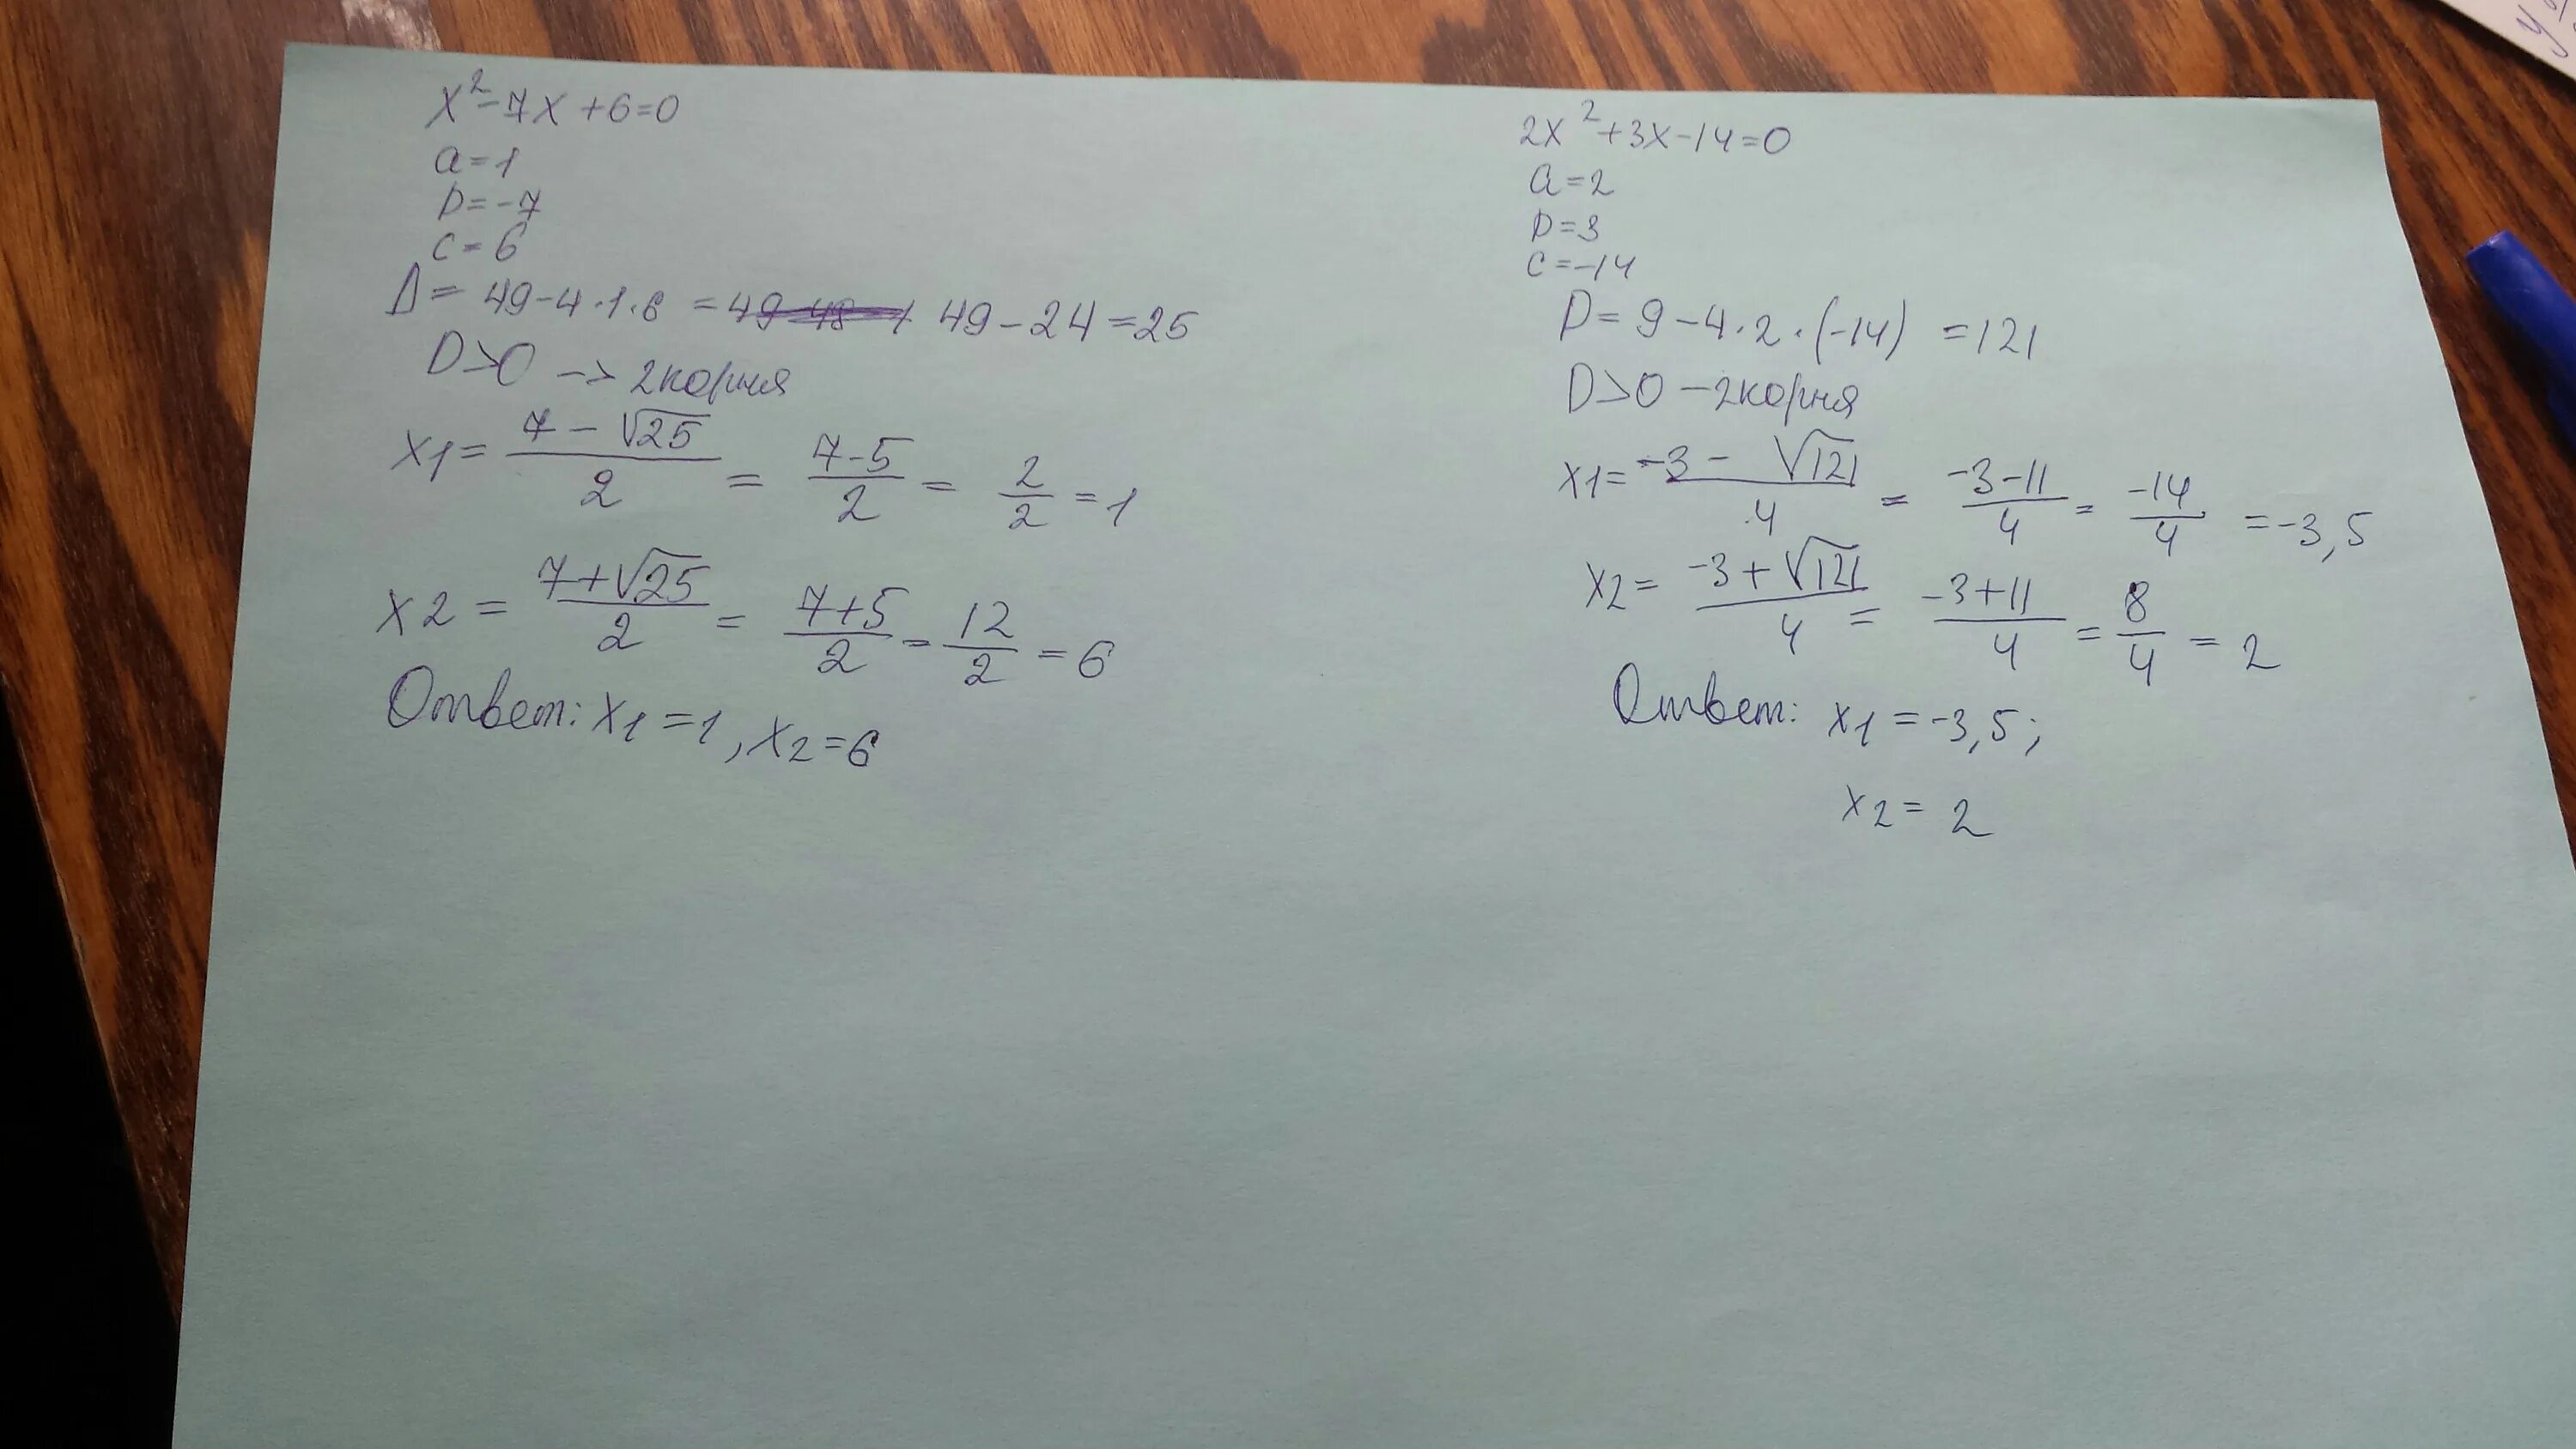 x²-7x+6=0
a=1
b=-7
c=6
D= 49-4·1·6 = 49-48=1 49-24=25
D>0 -> 2 корня
x1= (7-√25)/2 = (7-5)/2 = 2/2 =1
x2= (7+√25)/2 = (7+5)/2 = 12/2 =6
Ответ: x1=1, x2=6
2x²+3x-14=0
a=2
b=3
c=-14
D= 9-4·2·(-14) =121
D>0 -2 корня
x1= (-3-√121)/4 = (-3-11)/4 = -14/4 =-3,5
x2= (-3+√121)/4 = (-3+11)/4 = 8/4 = 2
Ответ: x1=-3,5;
x2= 2